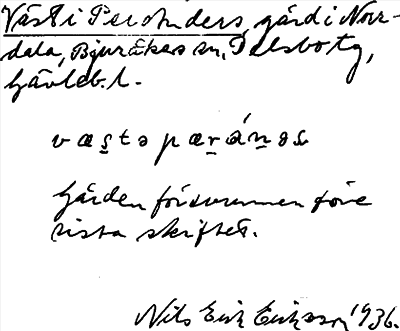 Väst i Per Anders, gård i Norr-
dala, Bjuråkers sn, Delsbo tg,
Gävleb. l.
væstə pæránəs
Gården försvunnen före
sista skiftet.
Nils Erik Eriksson 1936.